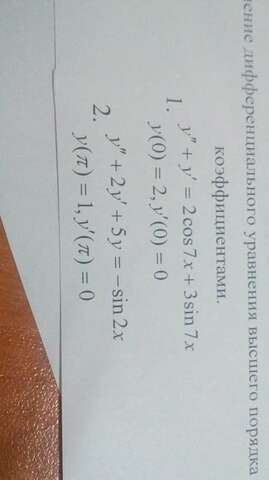 дифференциального уравнения высшего порядка
коэффициентами.
1. y'' + y' = 2 cos 7x + 3 sin 7x
y(0) = 2, y'(0) = 0
2. y'' + 2y' + 5y = − sin 2x
y(π) = 1, y'(π) = 0